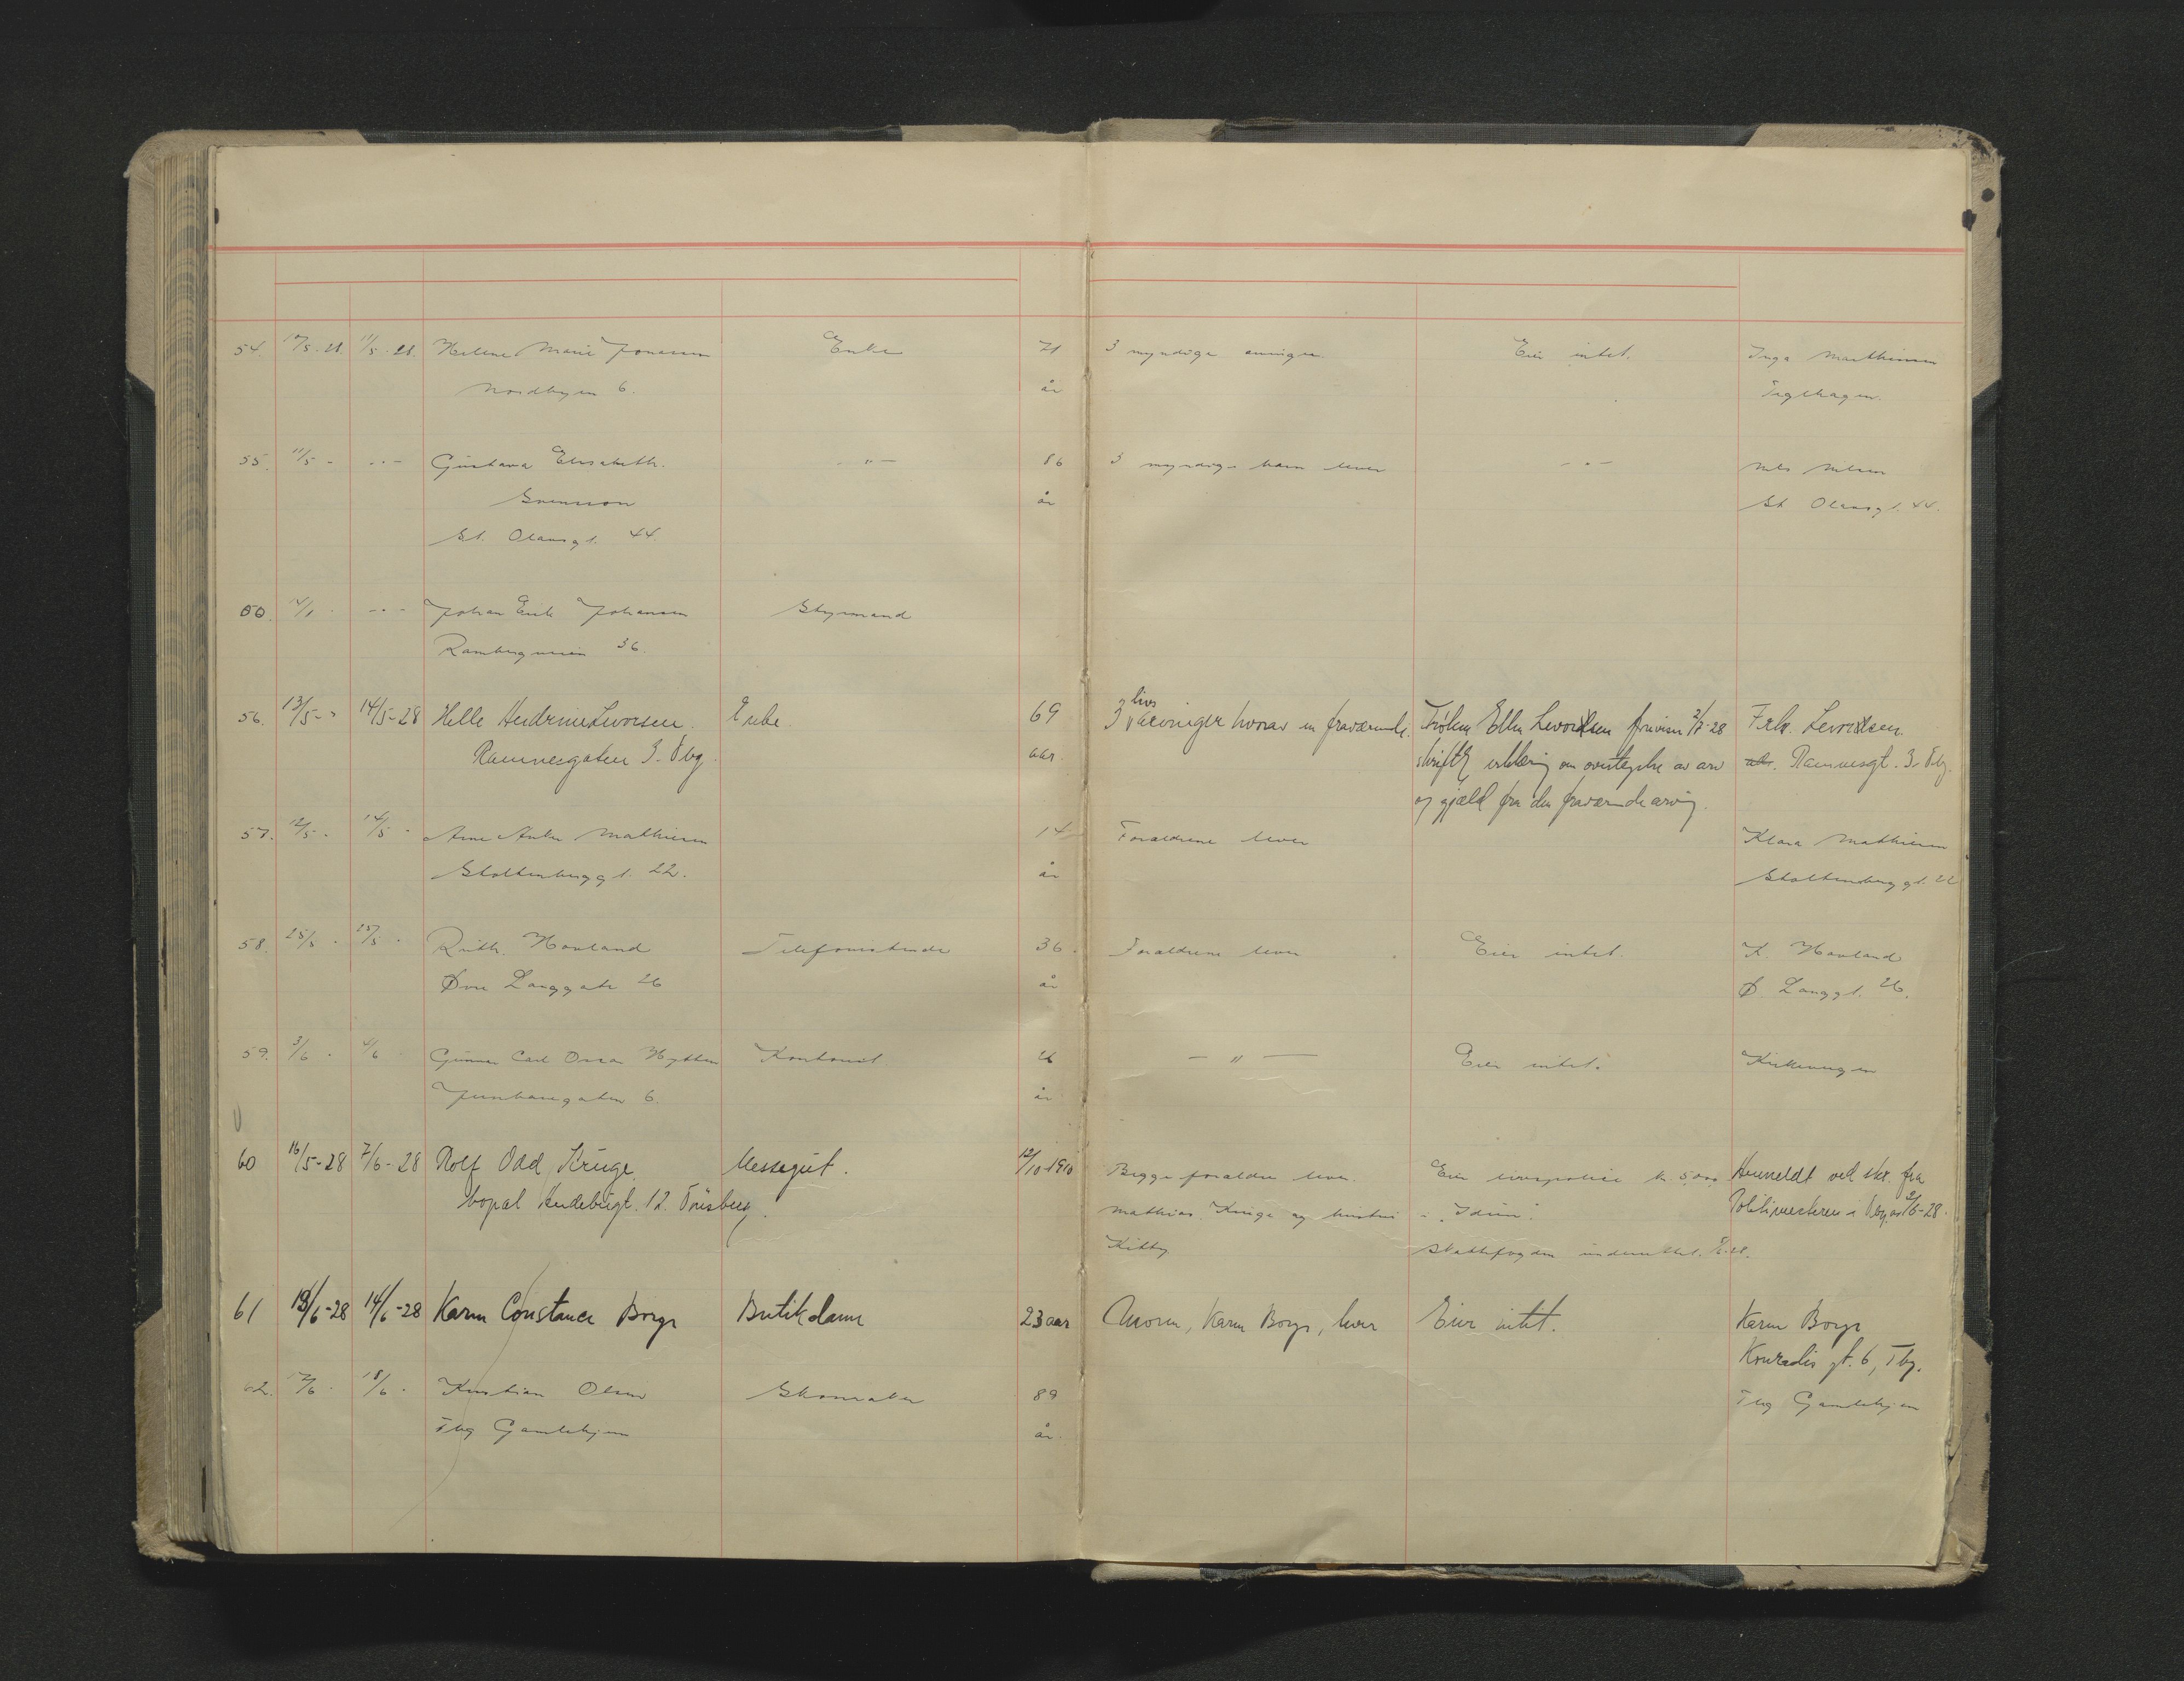 54. 10/5-28. 11/5-28. Helene Marie Jonassen Enke 71 3 myndige arvinger. Eier intet. Inga Marthinsen
Nordbyen 6. år Teglhagen.
55. 11/5 - - " - Gustava Elisabeth - " - 86 3 myndige barn lever - " - Nils Nilsen
Svensson år St. Olavsgt. 44.
St. Olavsgt. 44.
- " - Johan Erik Johansen Styrmand
Rambergveien 36.
56. 13/5 - " 14/5-28 Helle Hedrine Levorsen. Enke. 69 3 livsarvinger hvorav en fraværende. Frøken Ellen Levorsen 2/7-28 Frk. Levorsen.
Ramnesgaten 3. Tbg. aar skriftlig erklæring om overtagelse av arv Ramnesgt. 3. Tbg.
og gjæld fra den fraværende arving.
57. 12/5 - 14/5 - Arne Anker Mathisen 14 Forældrene lever Klara Mathisen
Stoltenberggt. 22. år Stoltenberggt. 22
58. 25/5 - Ruth Havland Telefonistinde 36. Forældrene lever Eier intet. K. Havland
Øvre Langgate 26 år Ø Langgt. 26.
59. 3/6 - 4/6 Gunnar Carl Oscar Hytten Kontorist 26 - " - Eier intet. Kirkevergen
Jernbanegaten 6. år
60 16/5-28 7/6-28 Rolf Odd Kruge. Messegut. 12/10-1910 Begge forældre lever. Eier livspolice kr. 5,000 Anmeldt ved skr. fra
bopæl Tønsberg. Mathias Kruge og hustru i "Idun". Politimesteren i Tbg. av 2/6-28.
Kitty Skattefogden underrettet.
61 13/6-28 14/6-28 Karen Constance Borge Butikdame 23 aar Moren, Karen Borge, lever Eier intet. Karen Borge
Konradis gt. 6, Tbg.
62. 18/6 - Kristian Olsen Skomaker 89 Tbg Gamlehjem
Tbg Gamlehjem år.